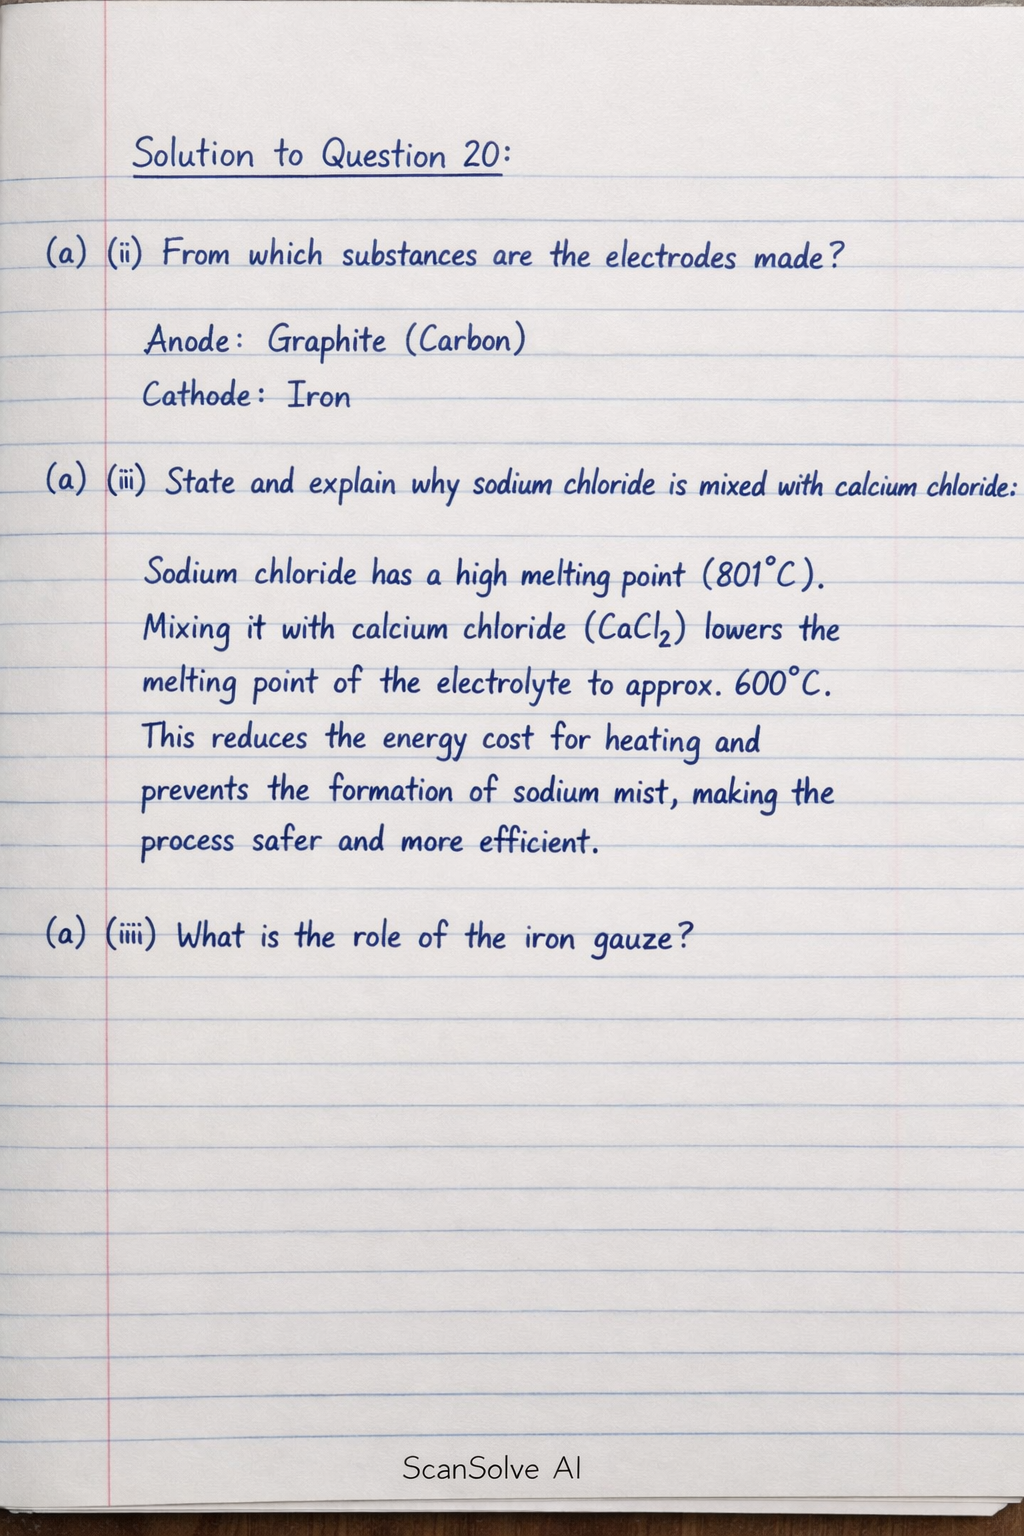 Solution to Question 20:
(a) (ii) From which substances are the electrodes made?
Anode: Graphite (Carbon)
Cathode: Iron
(a) (iii) State and explain why sodium chloride is mixed with calcium chloride:
Sodium chloride has a high melting point (801°C).
Mixing it with calcium chloride (CaCl₂) lowers the
melting point of the electrolyte to approx. 600°C.
This reduces the energy cost for heating and
prevents the formation of sodium mist, making the
process safer and more efficient.
(a) (iiii) What is the role of the iron gauze?
ScanSolve AI